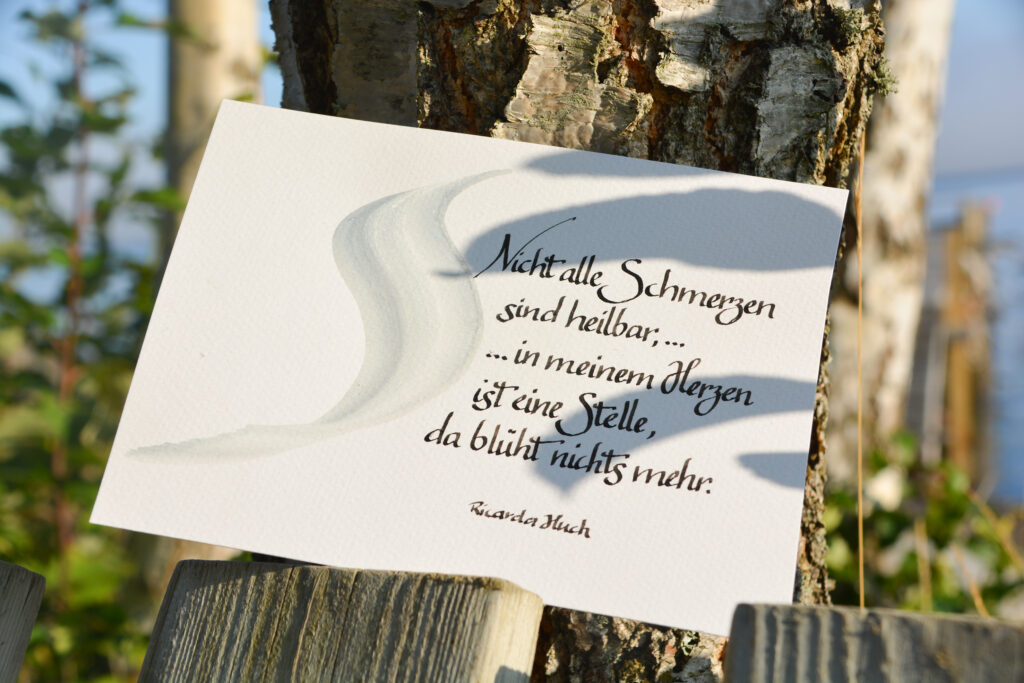 Nicht alle Schmerzen
sind heilbar, ...
... in meinem Herzen
ist eine Stelle,
da blüht nichts mehr.
Ricarda Huch